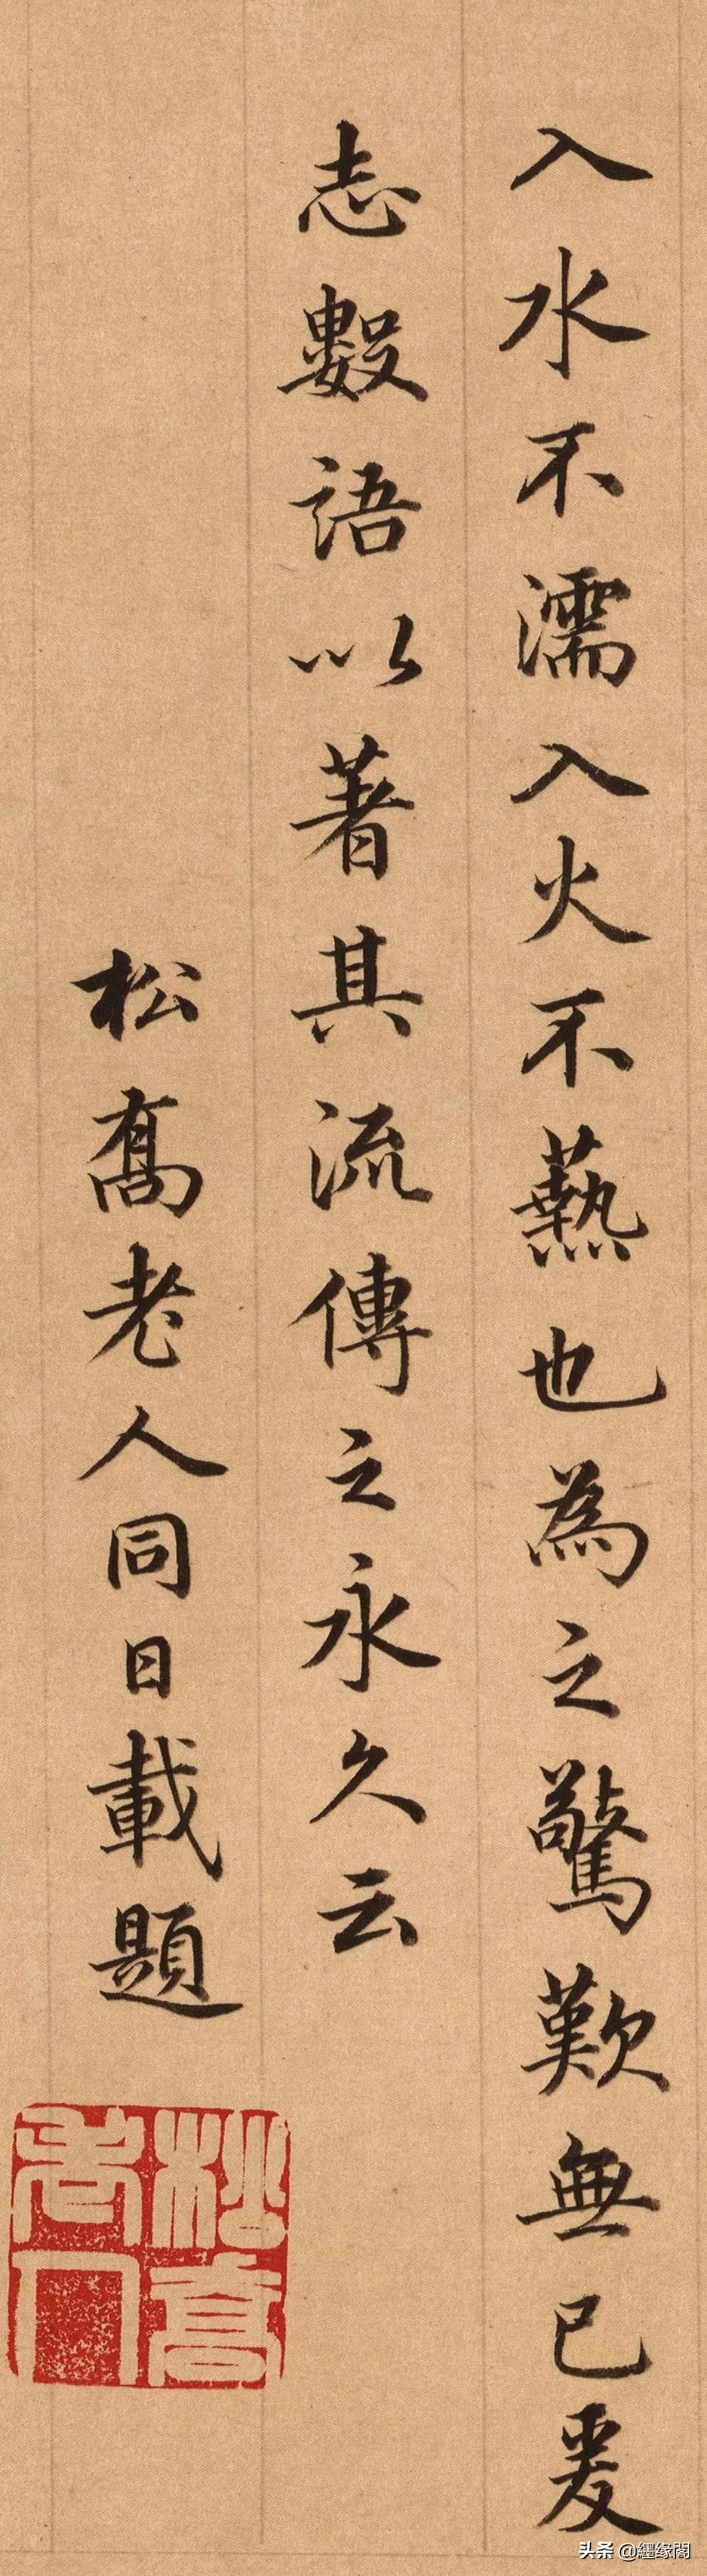 入水不濡入火不爇也為之驚歎無已爰
志數語以著其流傳之永久云
松髙老人同日載題
松髙老人
头条 @纒缘閣